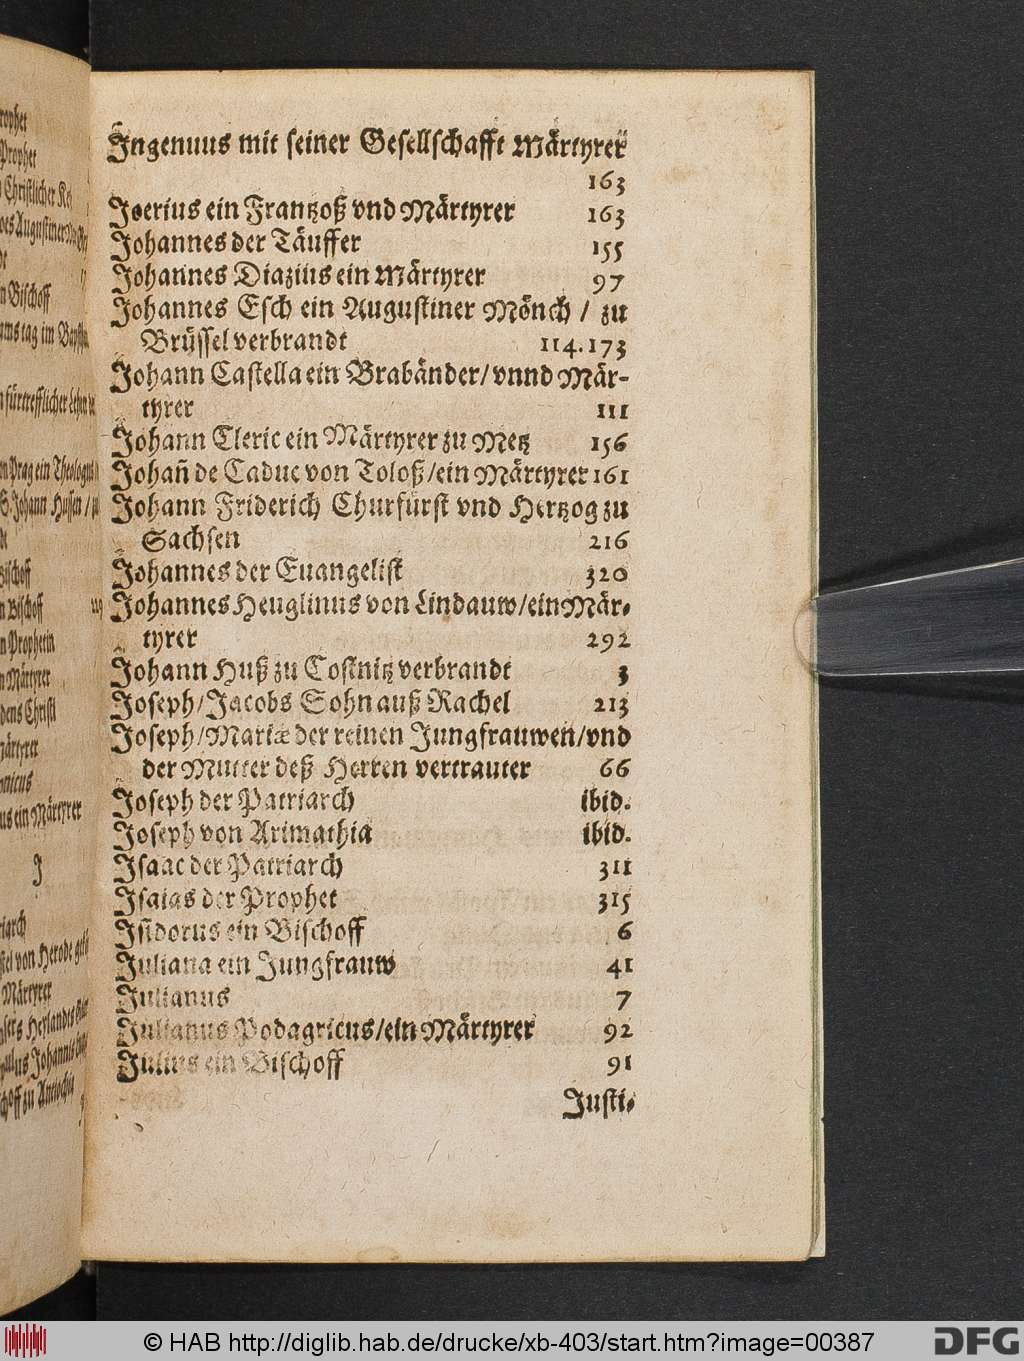 Ingenuus mit seiner Gesellschafft Märtyrer
163
Joerius ein Frantzoß vnd Märtyrer 163
Johannes der Täuffer 155
Johannes Diazius ein Märtyrer 97
Johannes Esch ein Augustiner Mönch / zu
Brüssel verbrandt 114.173
Johann Castella ein Brabänder/vnnd Mär-
tyrer 111
Johann Cleric ein Märtyrer zu Metz 156
Johañ de Caduc von Toloß/ein Märtyrer 161
Johann Friderich Churfürst vnd Hertzog zu
Sachsen 216
Johannes der Euangelist 320
Johannes Heuglinus von Lindauw/ein Mär-
tyrer 292
Johann Huß zu Costnitz verbrandt 3
Joseph/Jacobs Sohn auß Rachel 213
Joseph/Mariæ der reinen Jungfrauwen/vnd
der Mutter deß Herren vertrauter 66
Joseph der Patriarch ibid.
Joseph von Arimathia ibid.
Isaac der Patriarch 311
Isaias der Prophet 315
Isidorus ein Bischoff 6
Juliana ein Jungfrauw 41
Julianus 7
Julianus Podagricus/ein Märtyrer 92
Julius ein Bischoff 91
Justi-
© HAB http://diglib.hab.de/drucke/xb-403/start.htm?image=00387
DFG